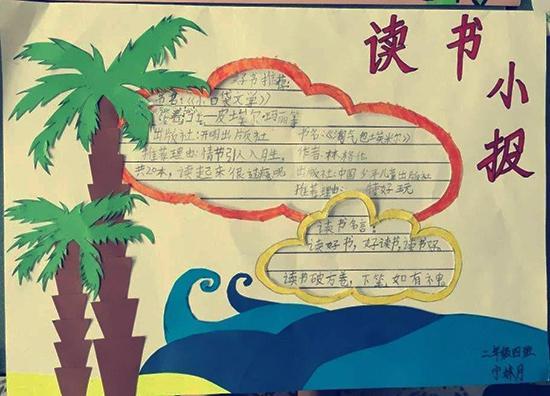 读书小报
好书推荐:
书名:《小口袋大堂》
出版社:开明出版社
推荐理由:情节引人入胜,
共20本,读起来很过瘾呢
书名:《淘气包埃米尔》
作者:林格伦
出版社:中国少年儿童出版社
推荐理由: 挺好玩
读书名言:
读好书,好读书,读书好
读书破万卷,下笔如有神
二年级四班
宁林月